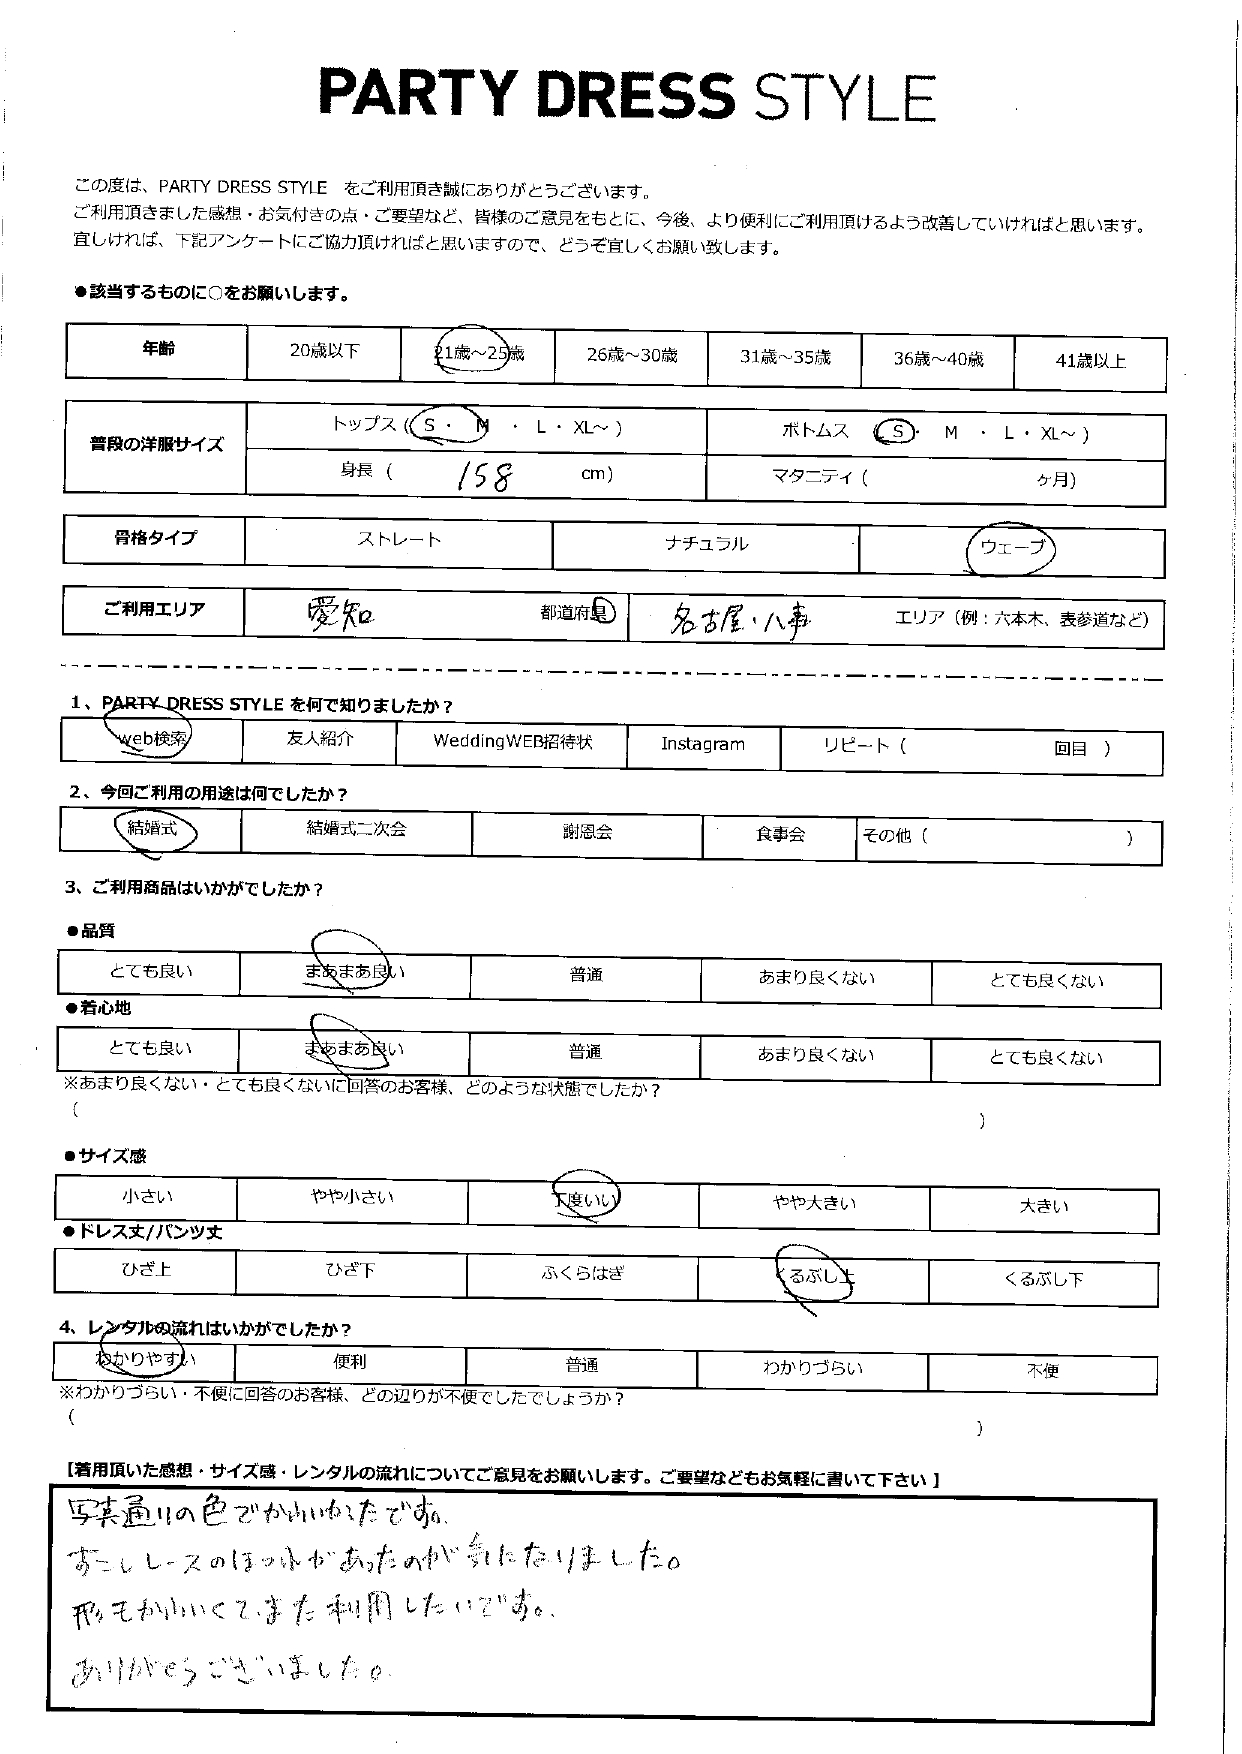 PARTY DRESS STYLE
この度は、PARTY DRESS STYLE をご利用頂き誠にありがとうございます。
ご利用頂きました感想・お気付きの点・ご要望など、皆様のご意見をもとに、今後、より便利にご利用頂けるよう改善していければと思います。
宜しければ、下記アンケートにご協力頂ければと思いますので、どうぞ宜しくお願い致します。
●該当するものに○をお願いします。
年齢 20歳以下 21歳～25歳 26歳～30歳 31歳～35歳 36歳～40歳 41歳以上
普段の洋服サイズ トップス ( S ・ M ・ L ・ XL～ ) ボトムス ( S ・ M ・ L ・ XL～ )
身長 ( 158 cm) マタニティ ( ヶ月)
骨格タイプ ストレート ナチュラル ウェーブ
ご利用エリア 愛知 都道府県 名古屋・八事 エリア（例：六本木、表参道など）
1、PARTY DRESS STYLE を何で知りましたか？
web検索 友人紹介 WeddingWEB招待状 Instagram リピート ( 回目 )
2、今回ご利用の用途は何でしたか？
結婚式 結婚式二次会 謝恩会 食事会 その他 ( )
3、ご利用商品はいかがでしたか？
●品質
とても良い まあまあ良い 普通 あまり良くない とても良くない
●着心地
とても良い まあまあ良い 普通 あまり良くない とても良くない
※あまり良くない・とても良くないに回答のお客様、どのような状態でしたか？
( )
●サイズ感
小さい やや小さい 丁度いい やや大きい 大きい
●ドレス丈/パンツ丈
ひざ上 ひざ下 ふくらはぎ くるぶし上 くるぶし下
4、レンタルの流れはいかがでしたか？
わかりやすい 便利 普通 わかりづらい 不便
※わかりづらい・不便に回答のお客様、どの辺りが不便でしたでしょうか？
( )
【着用頂いた感想・サイズ感・レンタルの流れについてご意見をお願いします。ご要望などもお気軽に書いて下さい 】
写真通りの色でかわいかったです。
すこしレースのほつれがあったのが気になりました。
形もかわいくて、また利用したいです。
ありがとうございました。